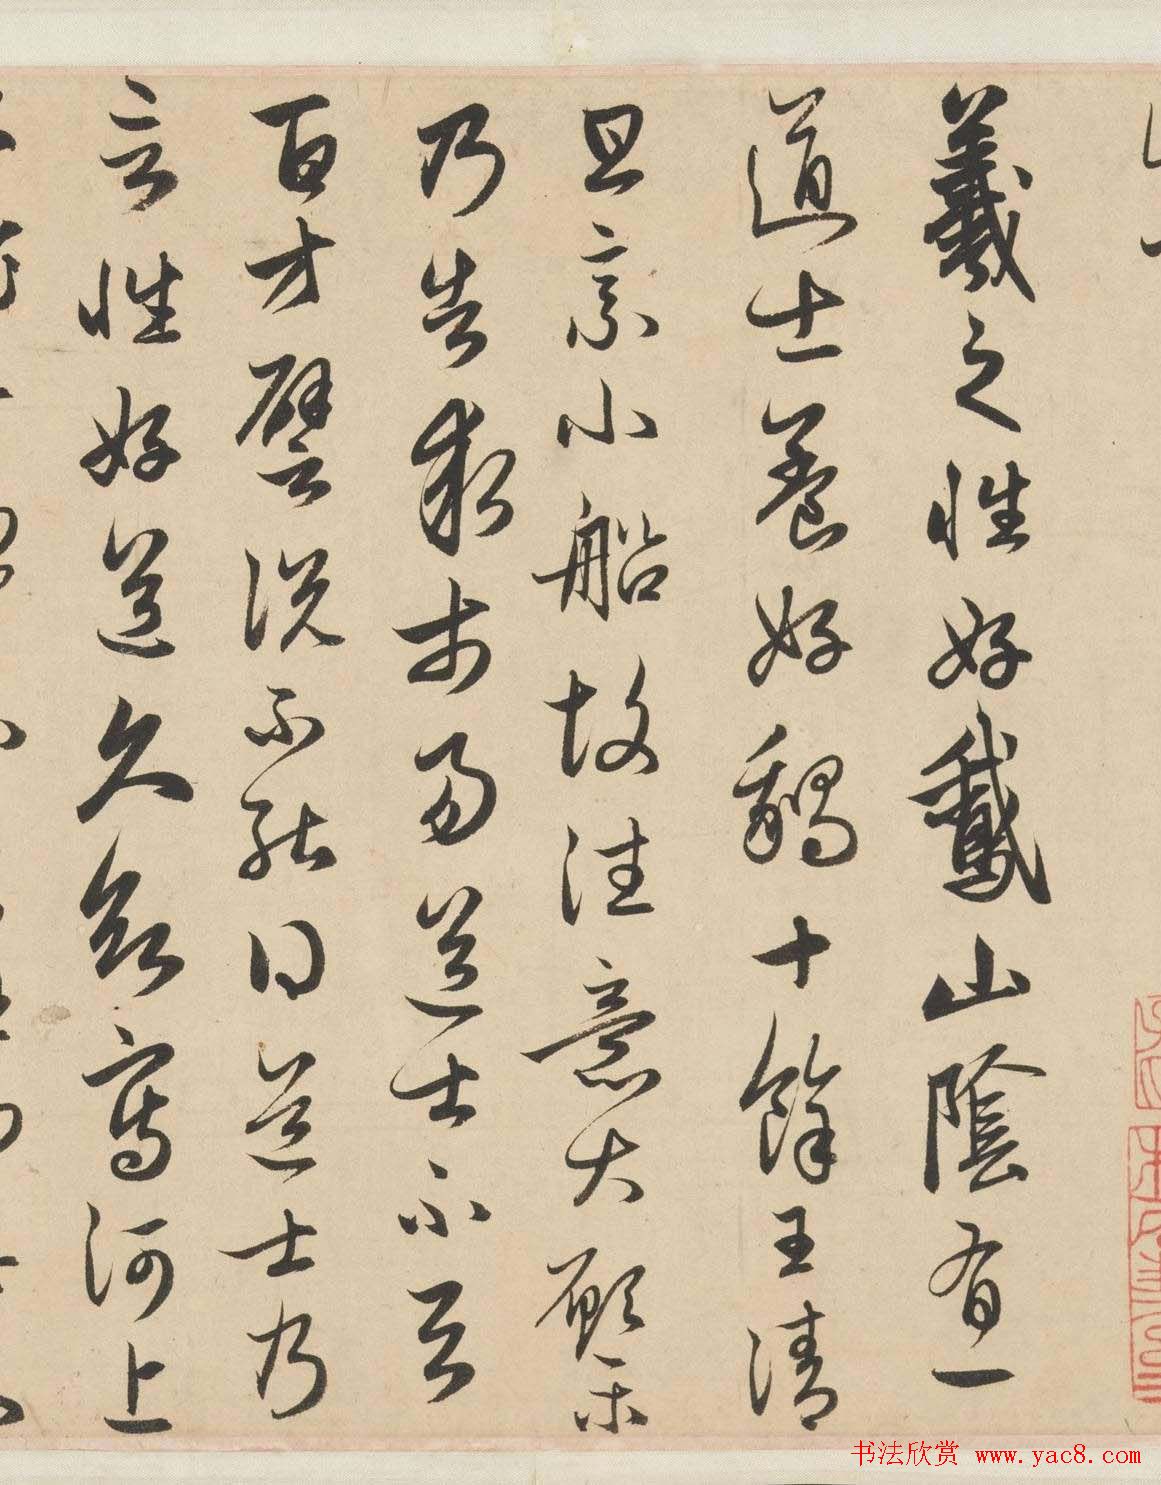 羲之性好鵞山陰有一
道士養好鵝十餘王清
旦乘小船故往意大願樂
乃告求市易道士不言
百方譬說不能得道士乃
言性好道久欲寫河上
书法欣赏 www.yac8.com